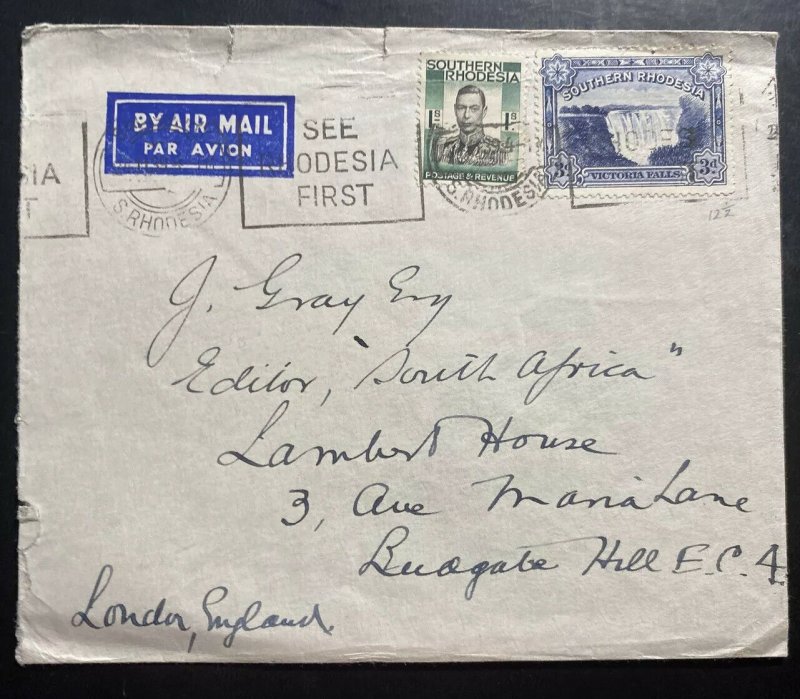 BY AIR MAIL
PAR AVION
SEE
RHODESIA
FIRST
S. RHODESIA
SOUTHERN
RHODESIA
1S 1S
POSTAGE & REVENUE
SOUTHERN RHODESIA
3d 3d
VICTORIA FALLS
S. RHODESIA
SIA
T
122
J. Gray Esq
Editor, "South Africa"
Lambert House
3, Ave Maria Lane
Ludgate Hill E.C.4
London, England.